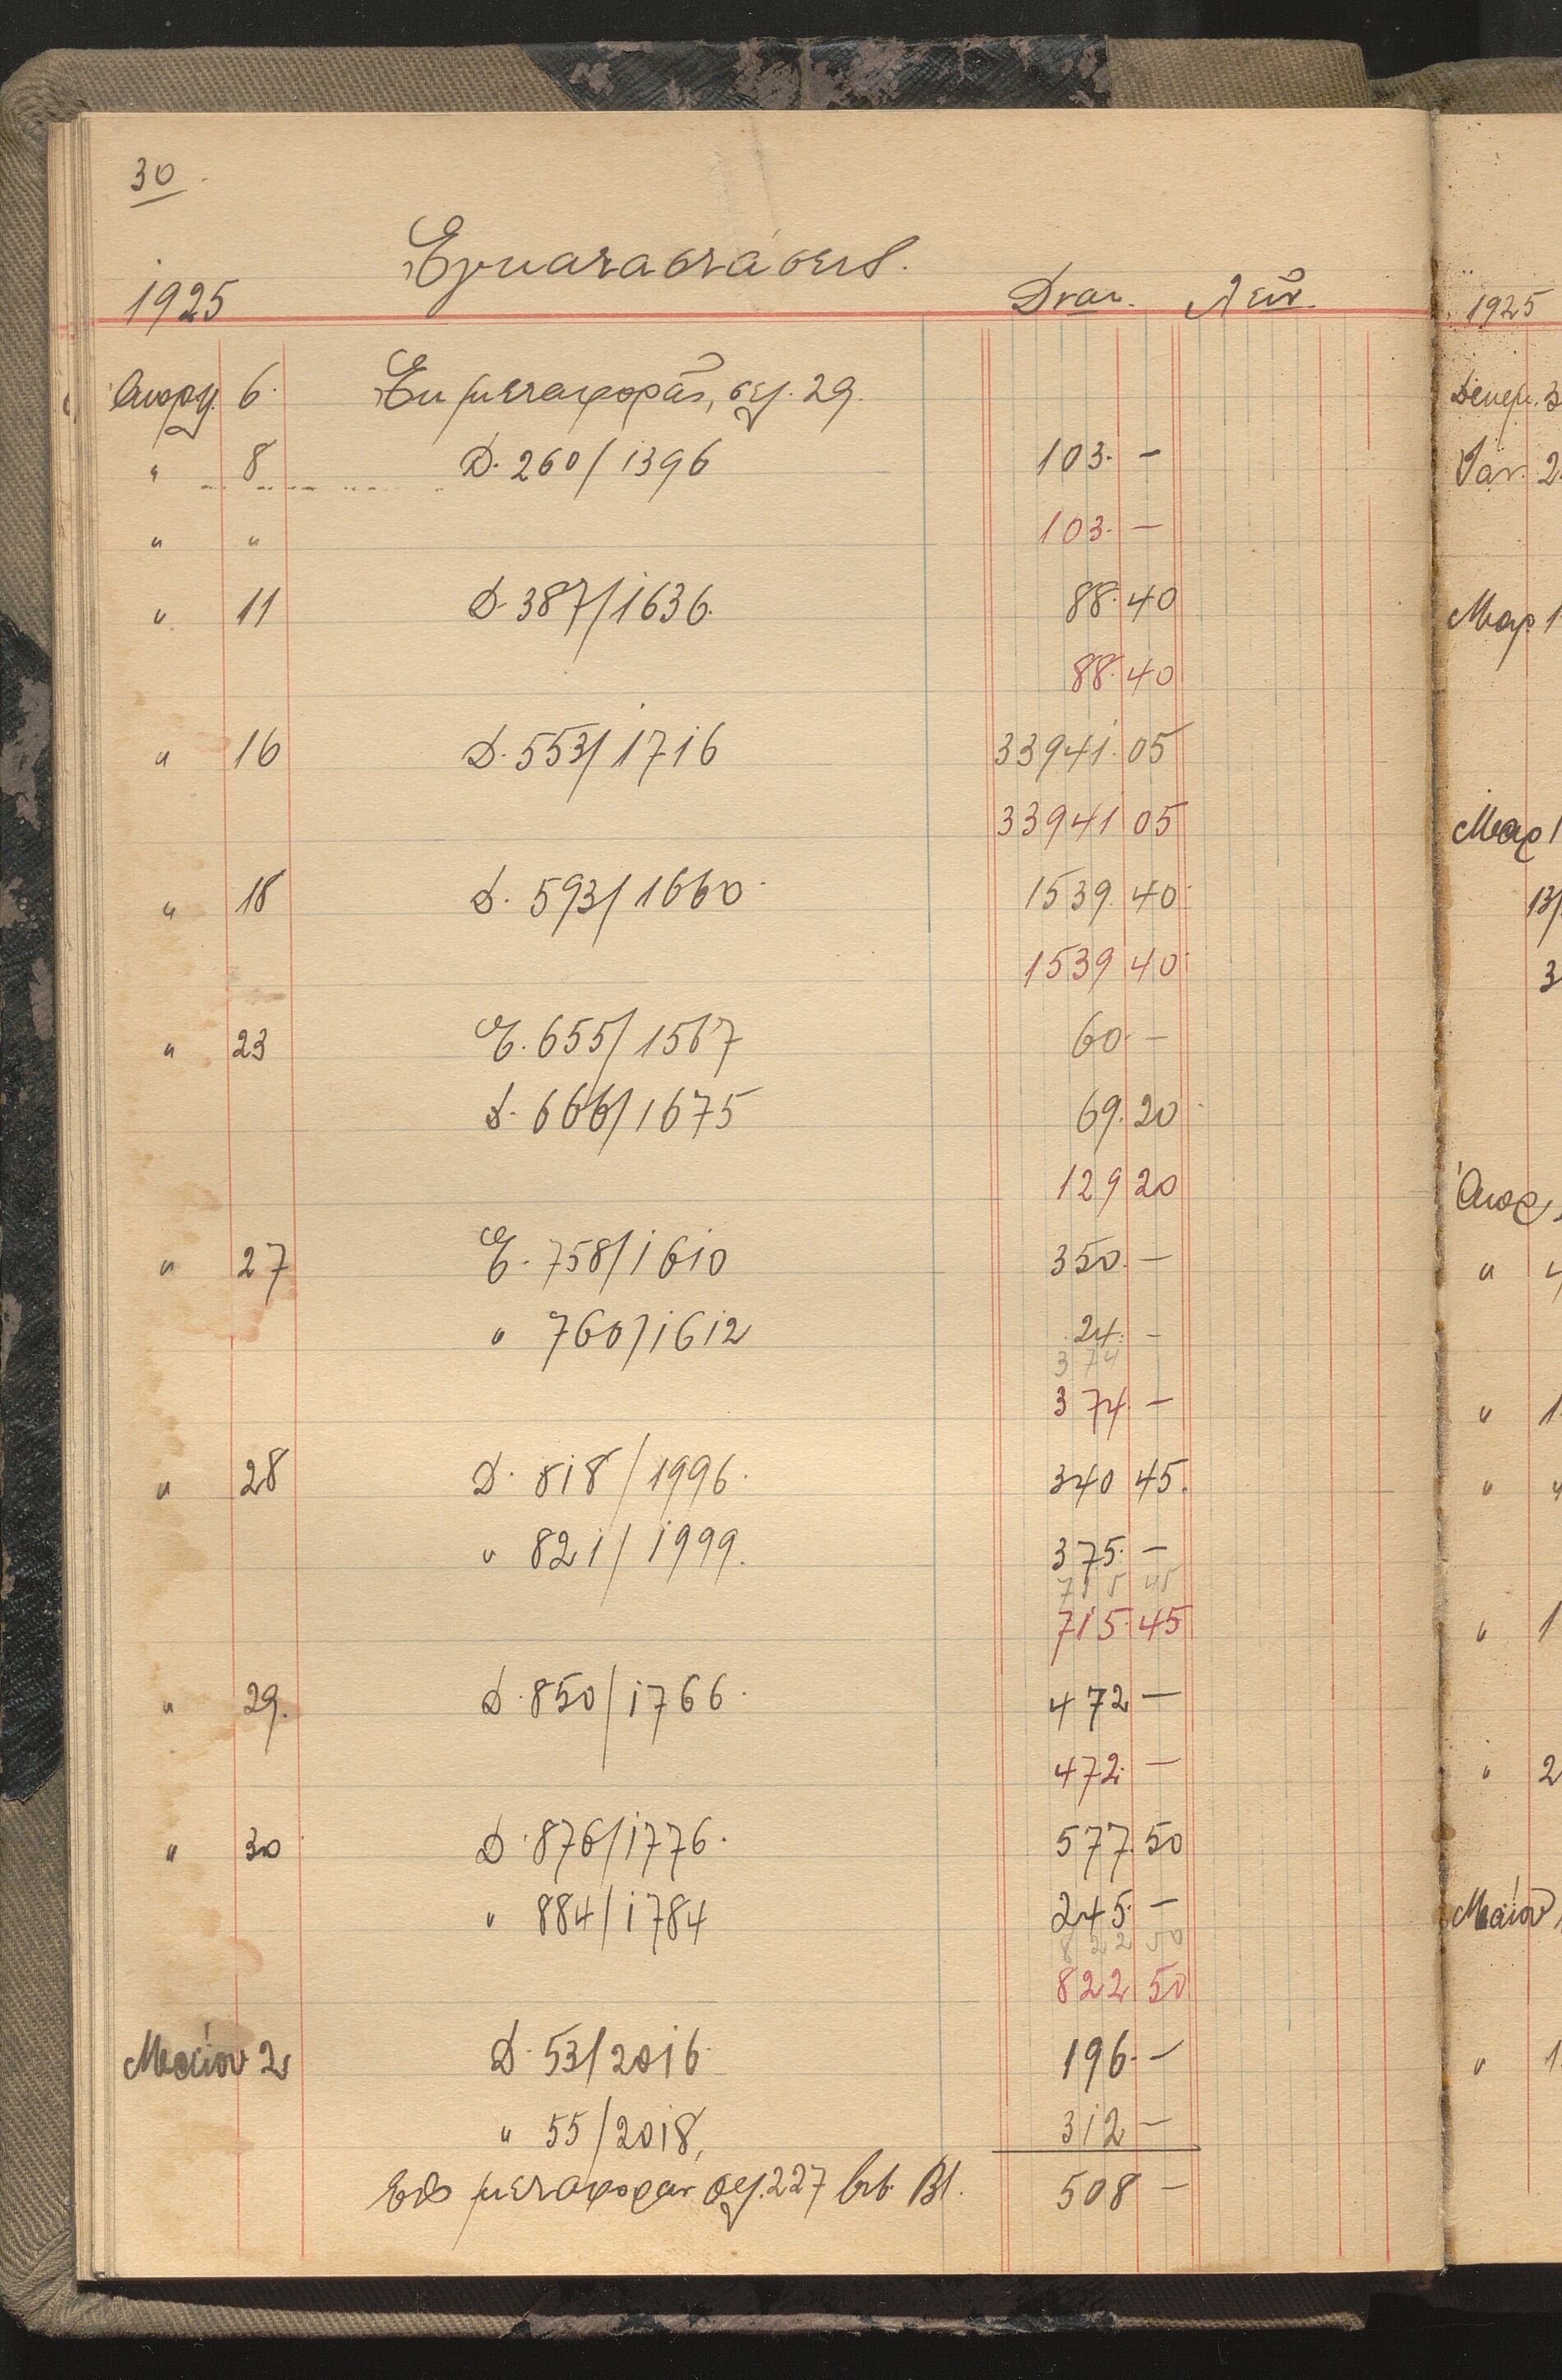 30.
Ἐγκαταστάσεις.
1925 Δραχ. Λεῦ.
Ἀπρίλ. 6. Ἐκ μεταφορᾶς, σελ. 29.
" 8 Δ. 260/1396 103. —
" " 103. —
" 11 Δ. 387/1636. 88.40
88.40
" 16 Δ. 553/1716 33941.05
33941 05
" 18 Δ. 593/1660. 1539.40
1539 40
" 23 Ε. 655/1567 60. —
Δ. 666/1675 69.20
129 20
" 27 Ε. 758/1610 350. —
" 760/1612 24. —
374
374. —
" 28 Δ. 818/1996. 340 45.
" 821/1999. 375. —
715 45
715.45
" 29. Δ. 850/1766. 472 —
472. —
" 30 Δ. 876/1776. 577.50
" 884/1784 245. —
822 50
822 50
Μαΐου 2 Δ. 53/2016 196. —
" 55/2018, 312 —
Εἰς μεταφοράν σελ. 227 Βλ. 508 —
1925
Δεκεμ. 3
Ἰαν. 2
Μαρ. 1
Μαρ 1
13/
3
Ἀπρ.
" 4
" 1
" "
" 1
" 2
Μαΐου
" 1